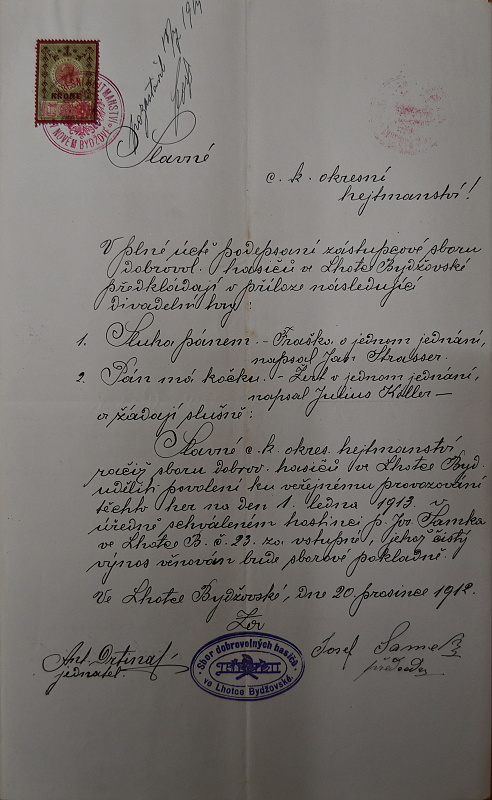 1
KRONE
HEJTMANSTVÍ
V NOVÉM BYDŽOVĚ
1919
Slavné
c. k. okresní
hejtmanství!
V plné úctě podepsaní zástupcové sboru
dobrovol. hasičů ve Lhotce Bydžovské
předkládají v příloze následující
divadelní hry:
1. Sluha pánem. - Fraška o jednom jednání,
napsal Jan Strasser.
2. Pán má kočku. - Žert v jednom jednání,
napsal Julius Köller —
a žádají slušně:
Slavné c. k. okres. hejtmanství
račiž sboru dobrov. hasičů ve Lhotce Byd.
uděliti povolení ku veřejnému provozování
těchto her na den 1. ledna 1913. v
úředně schváleném hostinci p. Jos. Samka
ve Lhotce B. č. 23. za vstupné, jehož čistý
výnos věnován bude sborové pokladně.
Ve Lhotce Bydžovské, dne 20. prosince 1912.
Za
Ant. Drtina
jednatel.
Sbor dobrovolných hasičů
ve Lhotce Bydžovské.
Josef Samek
předseda